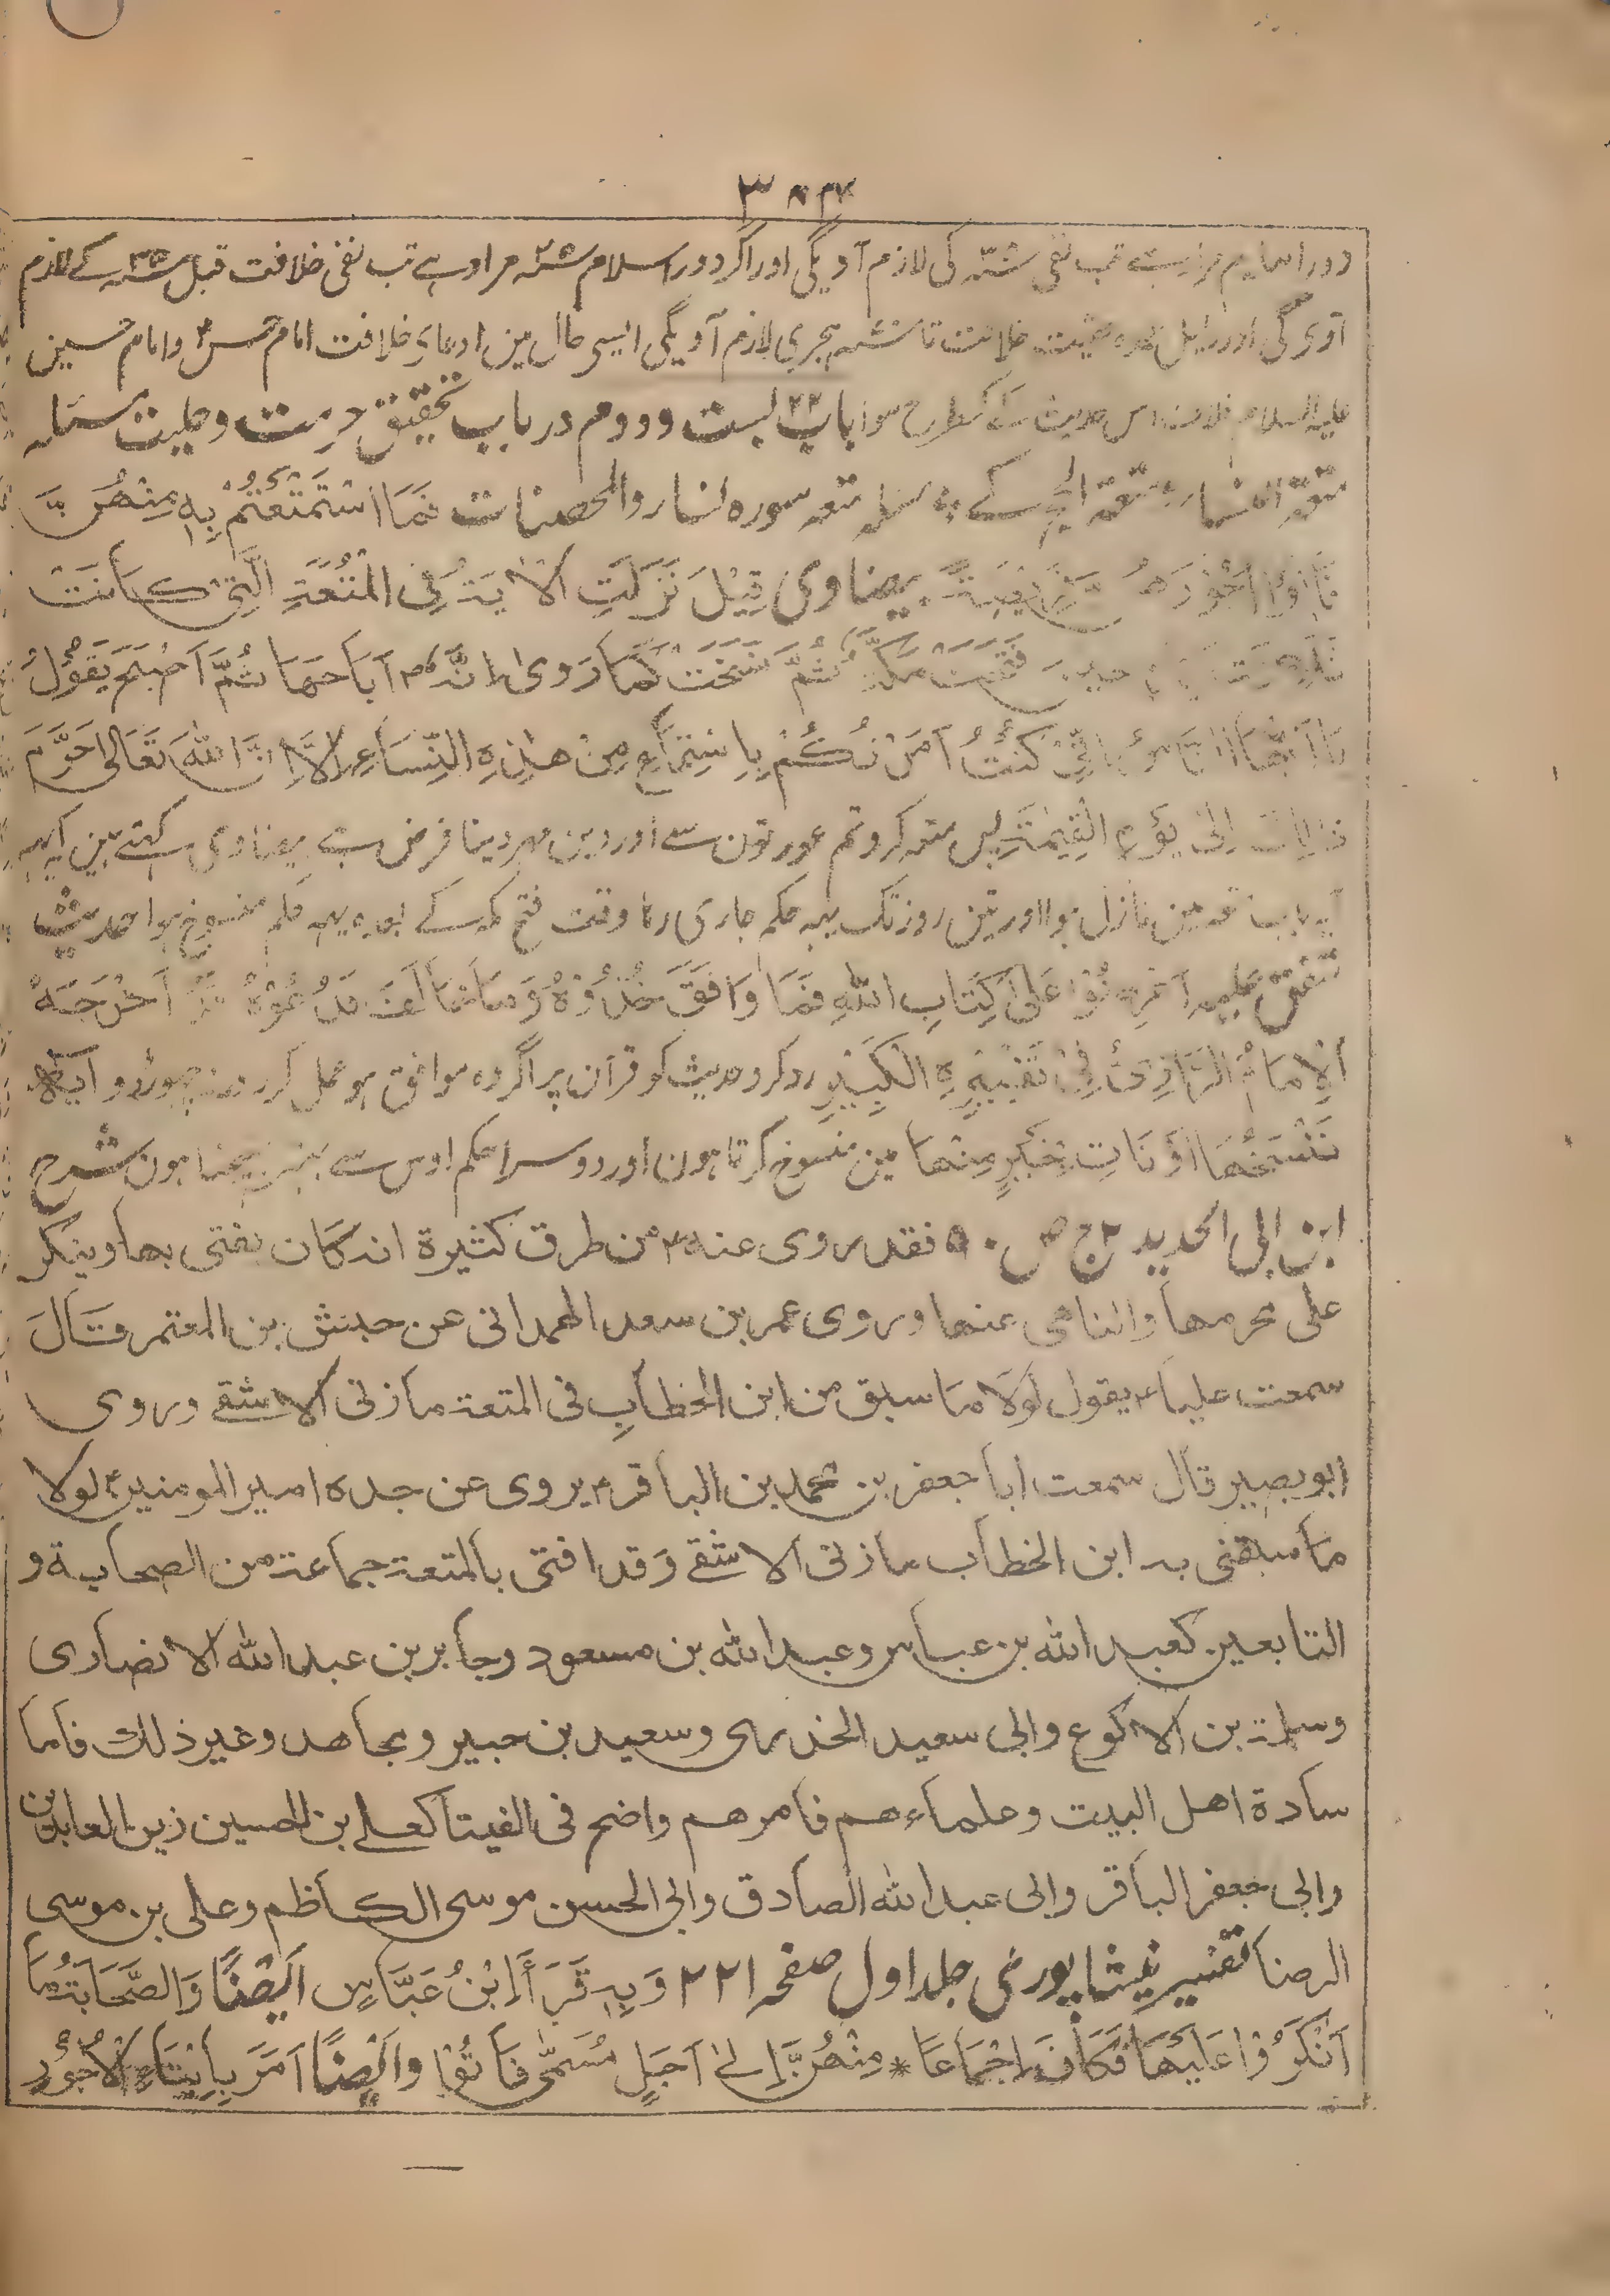 دور اسلام مراد ہے تب نفی سنہ کی لازم آویگی اور اگر دور اسلام سنہ ۳۵ مراد ہے تب نفی خلافت قبل سنہ ۳۵ کے لازم
آوی گی اور خلافت تا سنہ ہجری لازم آویگی ایسی حال مین ادعای خلافت امام حسن و امام حسین
علیہ السلام خلاف اس حدیث کے کسطرح ہوا باب ۲۲ بست و دوم در باب تحقیق حرمت و حلیت مسئلہ
متعۃ النساء و متعۃ الحج کے مسئلہ متعہ سورہ نساء والمحصنات فَمَا اسْتَمْتَعْتُمْ بِهٖ مِنْهُنَّ
فَاٰتُوْا اُجُوْرَهُنَّ فَرِيْضَةً بیضاوی قِيْلَ نَزَلَتِ الْاٰيَةُ فِي الْمُتْعَةِ الَّتِيْ كَانَتْ
حين فُتِحَتْ مَكَّةُ ثُمَّ نُسِخَتْ كَمَا رَوٰى اَنَّهٗ اَبَاحَهَا ثُمَّ اَصْبَحَ يَقُوْلُ
يَا اَيُّهَا النَّاسُ اِنِّيْ كُنْتُ اَمَرْتُكُمْ بِاسْتِمْتَاعٍ مِنْ هٰذِهِ النِّسَاءِ اِلَّا اِنَّ اللّٰهَ تَعَالٰى حَرَّمَ
ذٰلِكَ اِلٰى يَوْمِ الْقِيٰمَةِ پس متعہ کرو تم عورتون سے اور دین مہر دینا فرض ہے بیضاوی کہتے ہین کہ یہہ
آیہ باب متعہ مین نازل ہوا اور تین روز تک یہہ حکم جاری رہا وقت فتح مکہ کے بعدہ یہہ حکم منسوخ ہوا حدیث
متفق علیہ عَلٰى كِتَابِ اللّٰهِ فَمَا وَافَقَ خُذُوْهُ وَمَا خَالَفَ فَدَعُوْهُ اَخْرَجَهٗ
الْاِمَامُ الرَّازِيُّ فِيْ تَفْسِيْرِهِ الْكَبِيْرِ رد کرو حدیث کو قرآن پر اگر وہ موافق ہو عمل کرو ورنہ چھوڑ دو آیۃ
نَنْسَخْهَا اَوْ نَاْتِ بِخَيْرٍ مِنْهَا مین منسوخ کرتا ہون اور دوسرا حکم اوس سے بہتر بھیجتا ہون شرح
ابن ابی الحدید ج ۲ ص ۵۰ فقد روی عنہ من طرق کثیرة انہ کان یفتی بھا وینکر
علی محرمھا والناھی عنھا وروی عمر بن سعد الھمدانی عن حبیش بن المعتمر قَالَ
سمعت علیاء یقول لولا ما سبق من ابن الخطاب فی المتعة ما زنی الا شقے وروی
ابوبصیر قال سمعت ابا جعفر بن محمد بن الباقر یروی عن جدہ امیر المومنین لولا
ما سبقنی بہ ابن الخطاب ما زنی الا شقے وقد افتی بالمتعة جماعة من الصحابة و
التابعین کعبد اللہ بن عباس وعبد اللہ بن مسعود وجابر بن عبد اللہ الانصاری
وسلمة بن الاکوع وابی سعید الخدری وسعید بن جبیر ومجاھد وغیر ذلك فاما
سادة اھل البیت وعلماءھم فامرھم واضح فی الفیتا کعلے بن الحسین زین العابدین
وابی جعفر الباقر وابی عبد اللہ الصادق وابی الحسن موسی الکاظم وعلی بن موسی
الرضا تفسیر نیشاپوری جلد اول صفحہ ۲۲۱ وَبِهٖ قَرَأَ اِبْنُ عَبَّاسٍ اَيْضًا وَالصَّحَابَةُ مَا
اَنْكَرُوْا عَلَيْهَا فَكَانَ اِجْمَاعًا * مِنْهُنَّ اِلٰى اَجَلٍ مُسَمًّى فَاٰتُوْا وَاَيْضًا اَمَرَ بِاِيْتَاءِ الْاُجُوْرِ